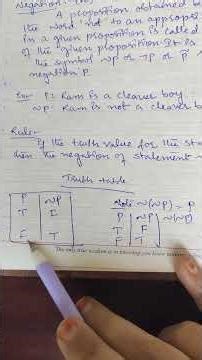 Negation:
A proposition obtained b
the word not to an appropr
in a given proposition is called
of the given proposition. It is
the symbol ~p or 7P or P
negation P.
Ex: P: Ram is a cleaver boy
~P: Ram is not a cleaver b
Rule:
If the truth value for the sta
then the negation of statement
Truth table
P ~P
T F
F T
Note ~(~P) = P
P ~P ~(~P)
T F
F T
The only true wisdom is in knowing you know